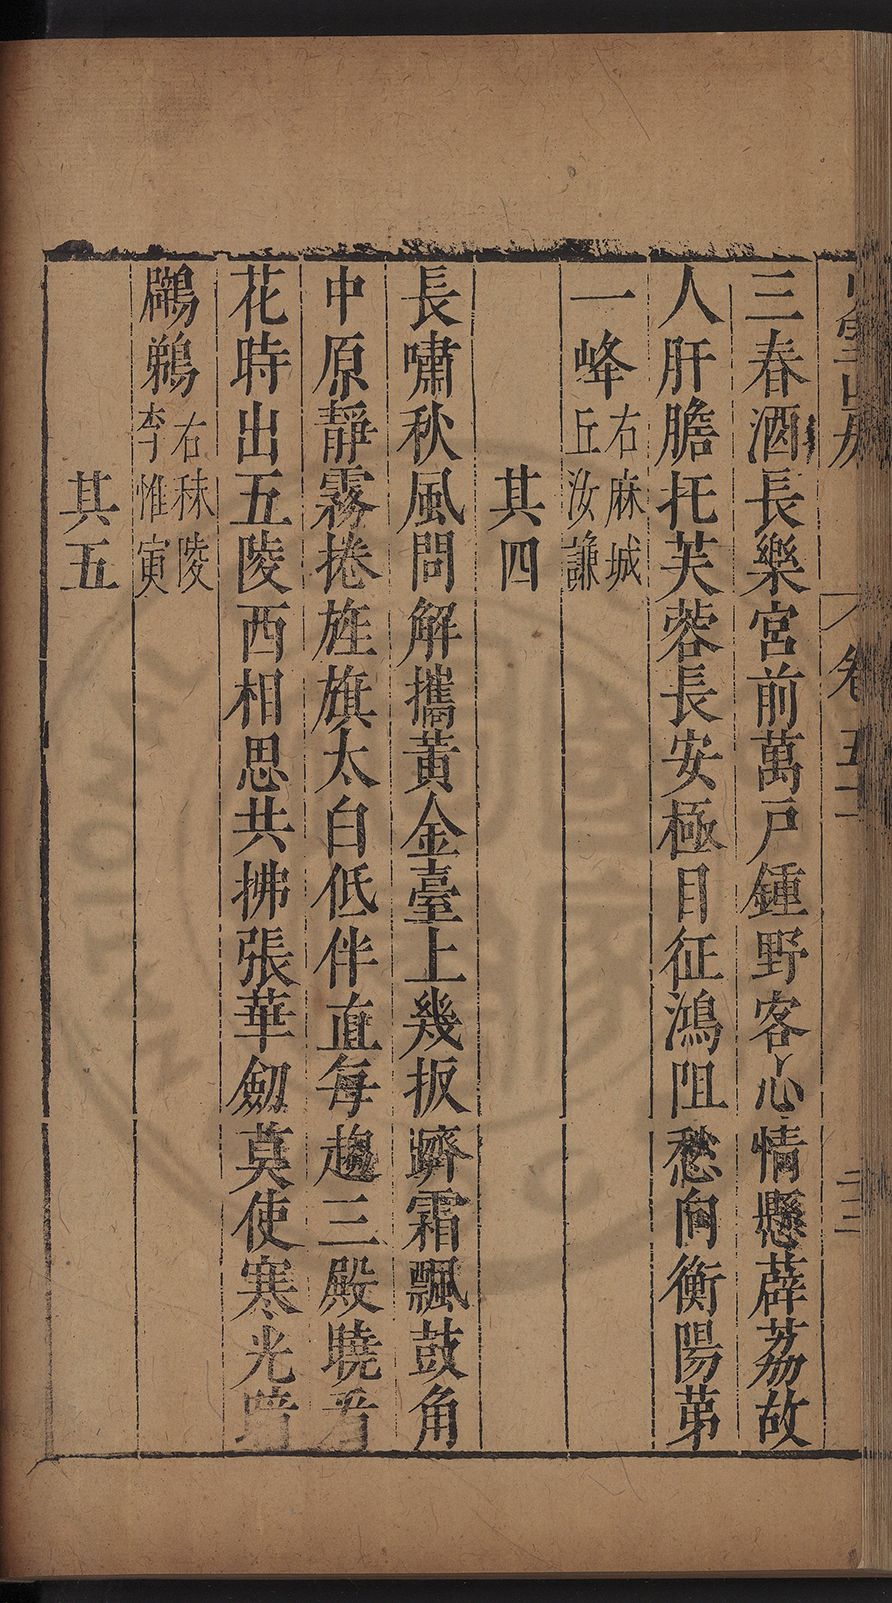 卷五十
三
三春酒長樂宮前萬戶鍾野客心情懸薜荔故
人肝膽托芙蓉長安極目征鴻阻愁向衡陽第
一峰右麻城丘汝謙
其四
長嘯秋風問解攜黃金臺上幾扳躋霜飄鼓角
中原靜霧捲旌旗太白低伴直每趨三殿曉看
花時出五陵西相思共拂張華劒莫使寒光
鸊鵜右秣陵李惟寅
其五